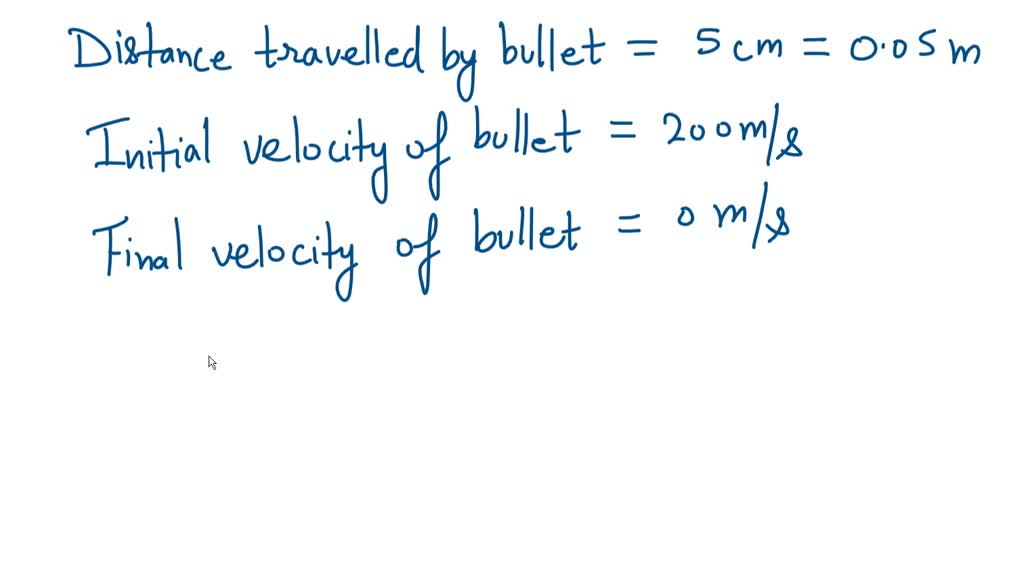 Distance travelled by bullet = 5 cm = 0.05 m
Initial velocity of bullet = 200 m/s
Final velocity of bullet = 0 m/s